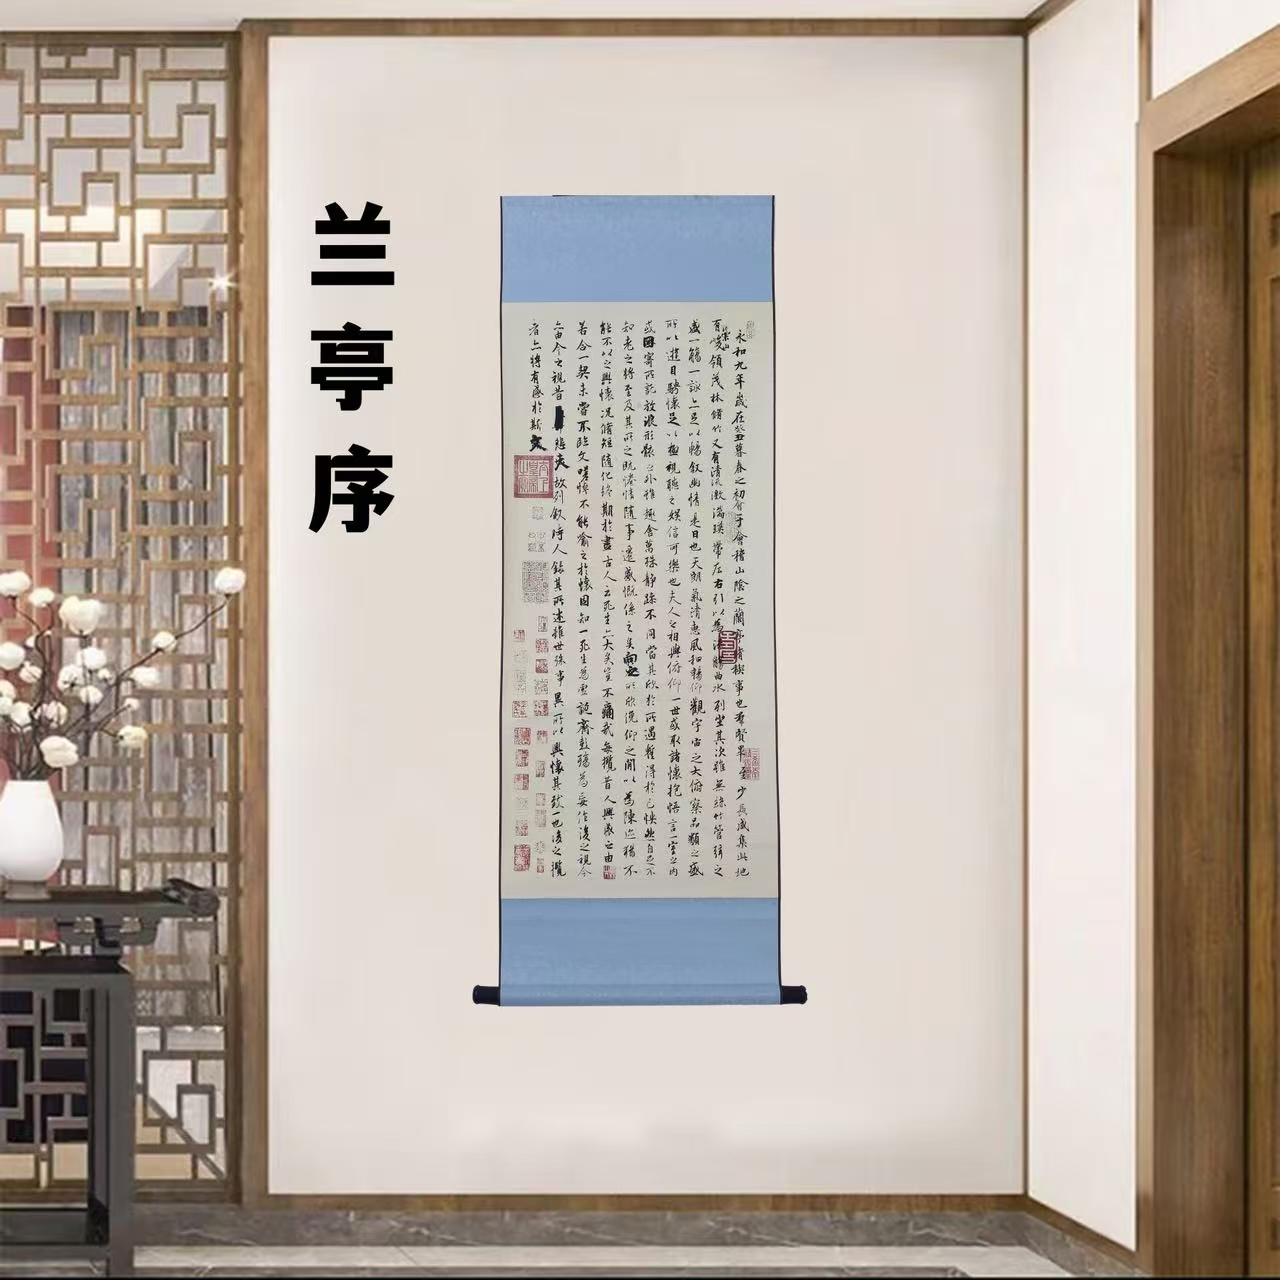 兰亭序
永和九年歲在癸丑暮春之初會于會稽山陰之蘭亭脩禊事也羣賢畢至少長咸集此地
有崇山峻領茂林脩竹又有清流激湍暎帶左右引以為流觴曲水列坐其次雖無絲竹管弦之
盛一觴一詠亦足以暢敘幽情是日也天朗氣清惠風和暢仰觀宇宙之大俯察品類之盛
所以遊目騁懷足以極視聽之娛信可樂也夫人之相與俯仰一世或取諸懷抱悟言一室之內
或因寄所託放浪形骸之外雖趣舍萬殊靜躁不同當其欣於所遇暫得於己怏然自足不
知老之將至及其所之既惓情隨事遷感慨係之矣向之所欣俛仰之間以為陳迹猶不
能不以之興懷況脩短隨化終期於盡古人云死生亦大矣豈不痛哉每攬昔人興感之由
若合一契未嘗不臨文嗟悼不能喻之於懷固知一死生為虛誕齊彭殤為妄作後之視今
亦由今之視昔悲夫故列敘時人錄其所述雖世殊事異所以興懷其致一也後之攬
者亦將有感於斯文